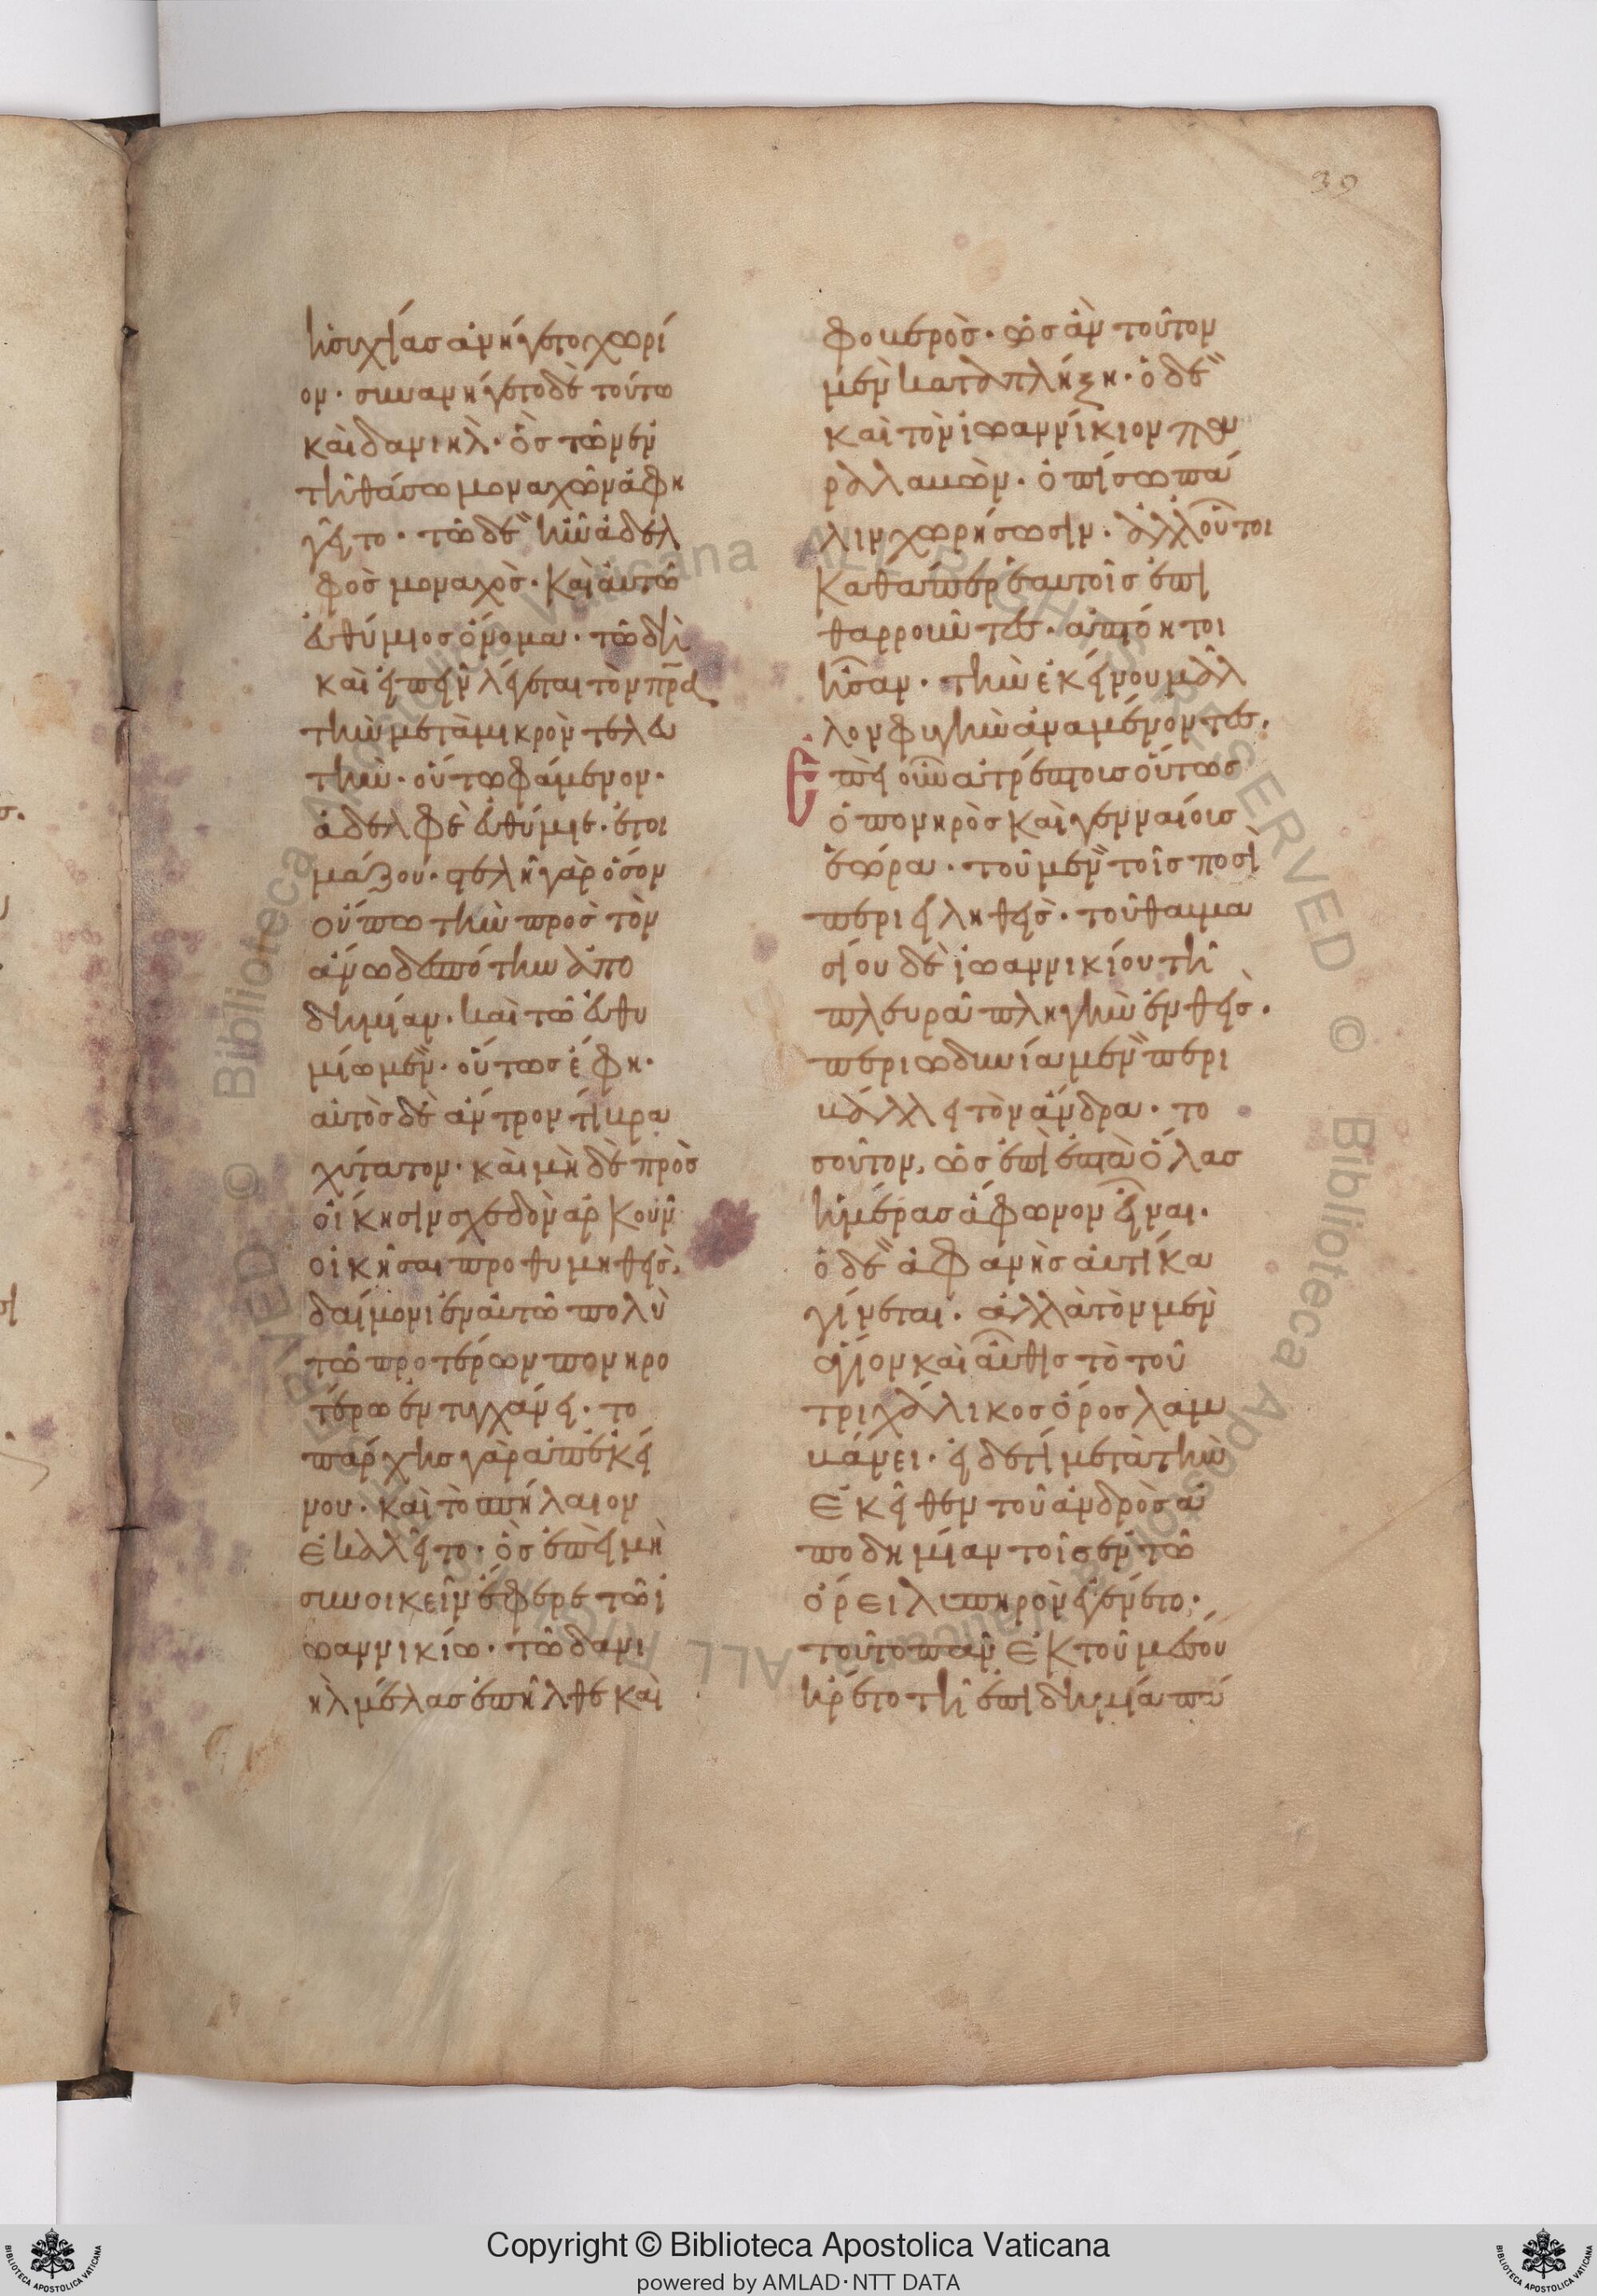 39
ἡσυχίας ἀνήγετο χωρί
ον· συνανήγετο δὲ τούτω
καὶ δανιὴλ· ὃς τῶν ἐν
τῆ θάσω μοναχῶν ἀφη
γεῖτο· τῶ δὲ ἦν ἀδελ
φὸς μοναχὸς· καὶ αὐτῶ
εὐθύμιος ὄνομα· τῶ δὴ
καὶ εἰπεῖν λέγεται τὸν πρα
τὴν μετὰ μικρὸν τελευ
τὴν· οὕτω φάμενον·
ἀδελφὲ εὐθύμιε· ἑτοι
μάζου· τελῆ γὰρ ὅσον
οὔπω τὴν πρὸς τὸν
ἄνω δεσπότην ἀπο
δημίαν· καὶ τῶ εὐθυ
μίω μὲν· οὕτως ἔφη·
αὐτὸς δὲ ἄντρον τί βρα
χύτατον· καὶ μὴ δὲ πρὸς
οἴκησιν σχεδὸν ἀρκοῦν
οἰκῆσαι προθυμηθεὶς,
δαίμονι ἐν αὐτῶ πολὺ
τῶ προτέρων πονηρο
τέρω ἐντυγχάνει· το
παρχῆς γὰρ ἀπεκεί
νου· καὶ τὸ σπήλαιον
ἐκαλεῖτο· ὃς ἐπεὶ μὴ
συνοικεῖν ἔφερε τῶ ἰ
ωαννικίω· τῶ δανι
ὴλ μέλας ἐπῆλθε καὶ
φοβερὸς· ὡς ἂν τοῦτον
μὲν καταπλήξη· ὁ δὲ
καὶ τὸν ἰωαννίκιον
ραλαβὼν· ὀπίσω πά
λιν χωρήσωσιν· ἀλλ' οὗτοι
καθάπερ ἑαυτοῖς ἐπι
θαρροῦντες· ἀπτόητοι
ἦσαν· τὴν ἐκείνου μᾶλ
λον φυγὴν ἀναμένοντες·
Ἐπεὶ οὖν ἀτρέπτους οὕτως
ὁ πονηρὸς καὶ γενναίους
ἑώρα· τοῦ μὲν τοῖς ποσὶ
περιειληθεὶς· τοῦ θαυμα
σίου δὲ ἰωαννικίου τῆ
πλευρᾶ πληγὴν ἐνθεὶς·
περιωδυνία μὲν περι
βάλλει τὸν ἄνδρα· το
σοῦτον, ὡς ἐπὶ ἑπτὰ ὅλας
ἡμέρας ἄφωνον εἶναι·
ὁ δὲ ἀφανὴς αὐτίκα
γίνεται· ἀλλὰ τὸν μὲν
ἅγιον καὶ αὖθις τὸ τοῦ
τριχάλικος ὄρος λαμ
βάνει· εἰ δέ τι μετὰ τὴν
ἐκεῖθεν τοῦ ἀνδρὸς ἀ
ποδημίαν τοῖς ἐν τῶ
ὄρει λυπηρὸν ἐγένετο·
τοῦτο πᾶν ἐκ τοῦ μέσου
ἤρετο τῆ ἐπιδημία πά
Copyright © Biblioteca Apostolica Vaticana
powered by AMLAD·NTT DATA